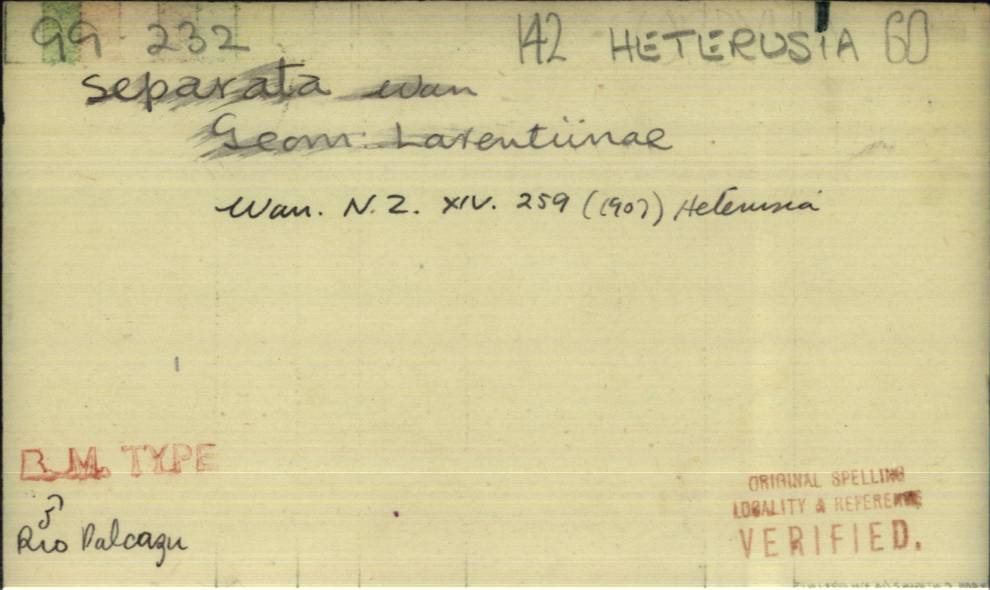 99 232 142 HETERUSIA 60
separata Warr
Geom: Larentiinae
Warr. N.Z. XIV. 259 (1907) Heterusia
B.M. TYPE
ORIGINAL SPELLING
LOCALITY & REFERENCE
VERIFIED.
♂
Rio Palcazu